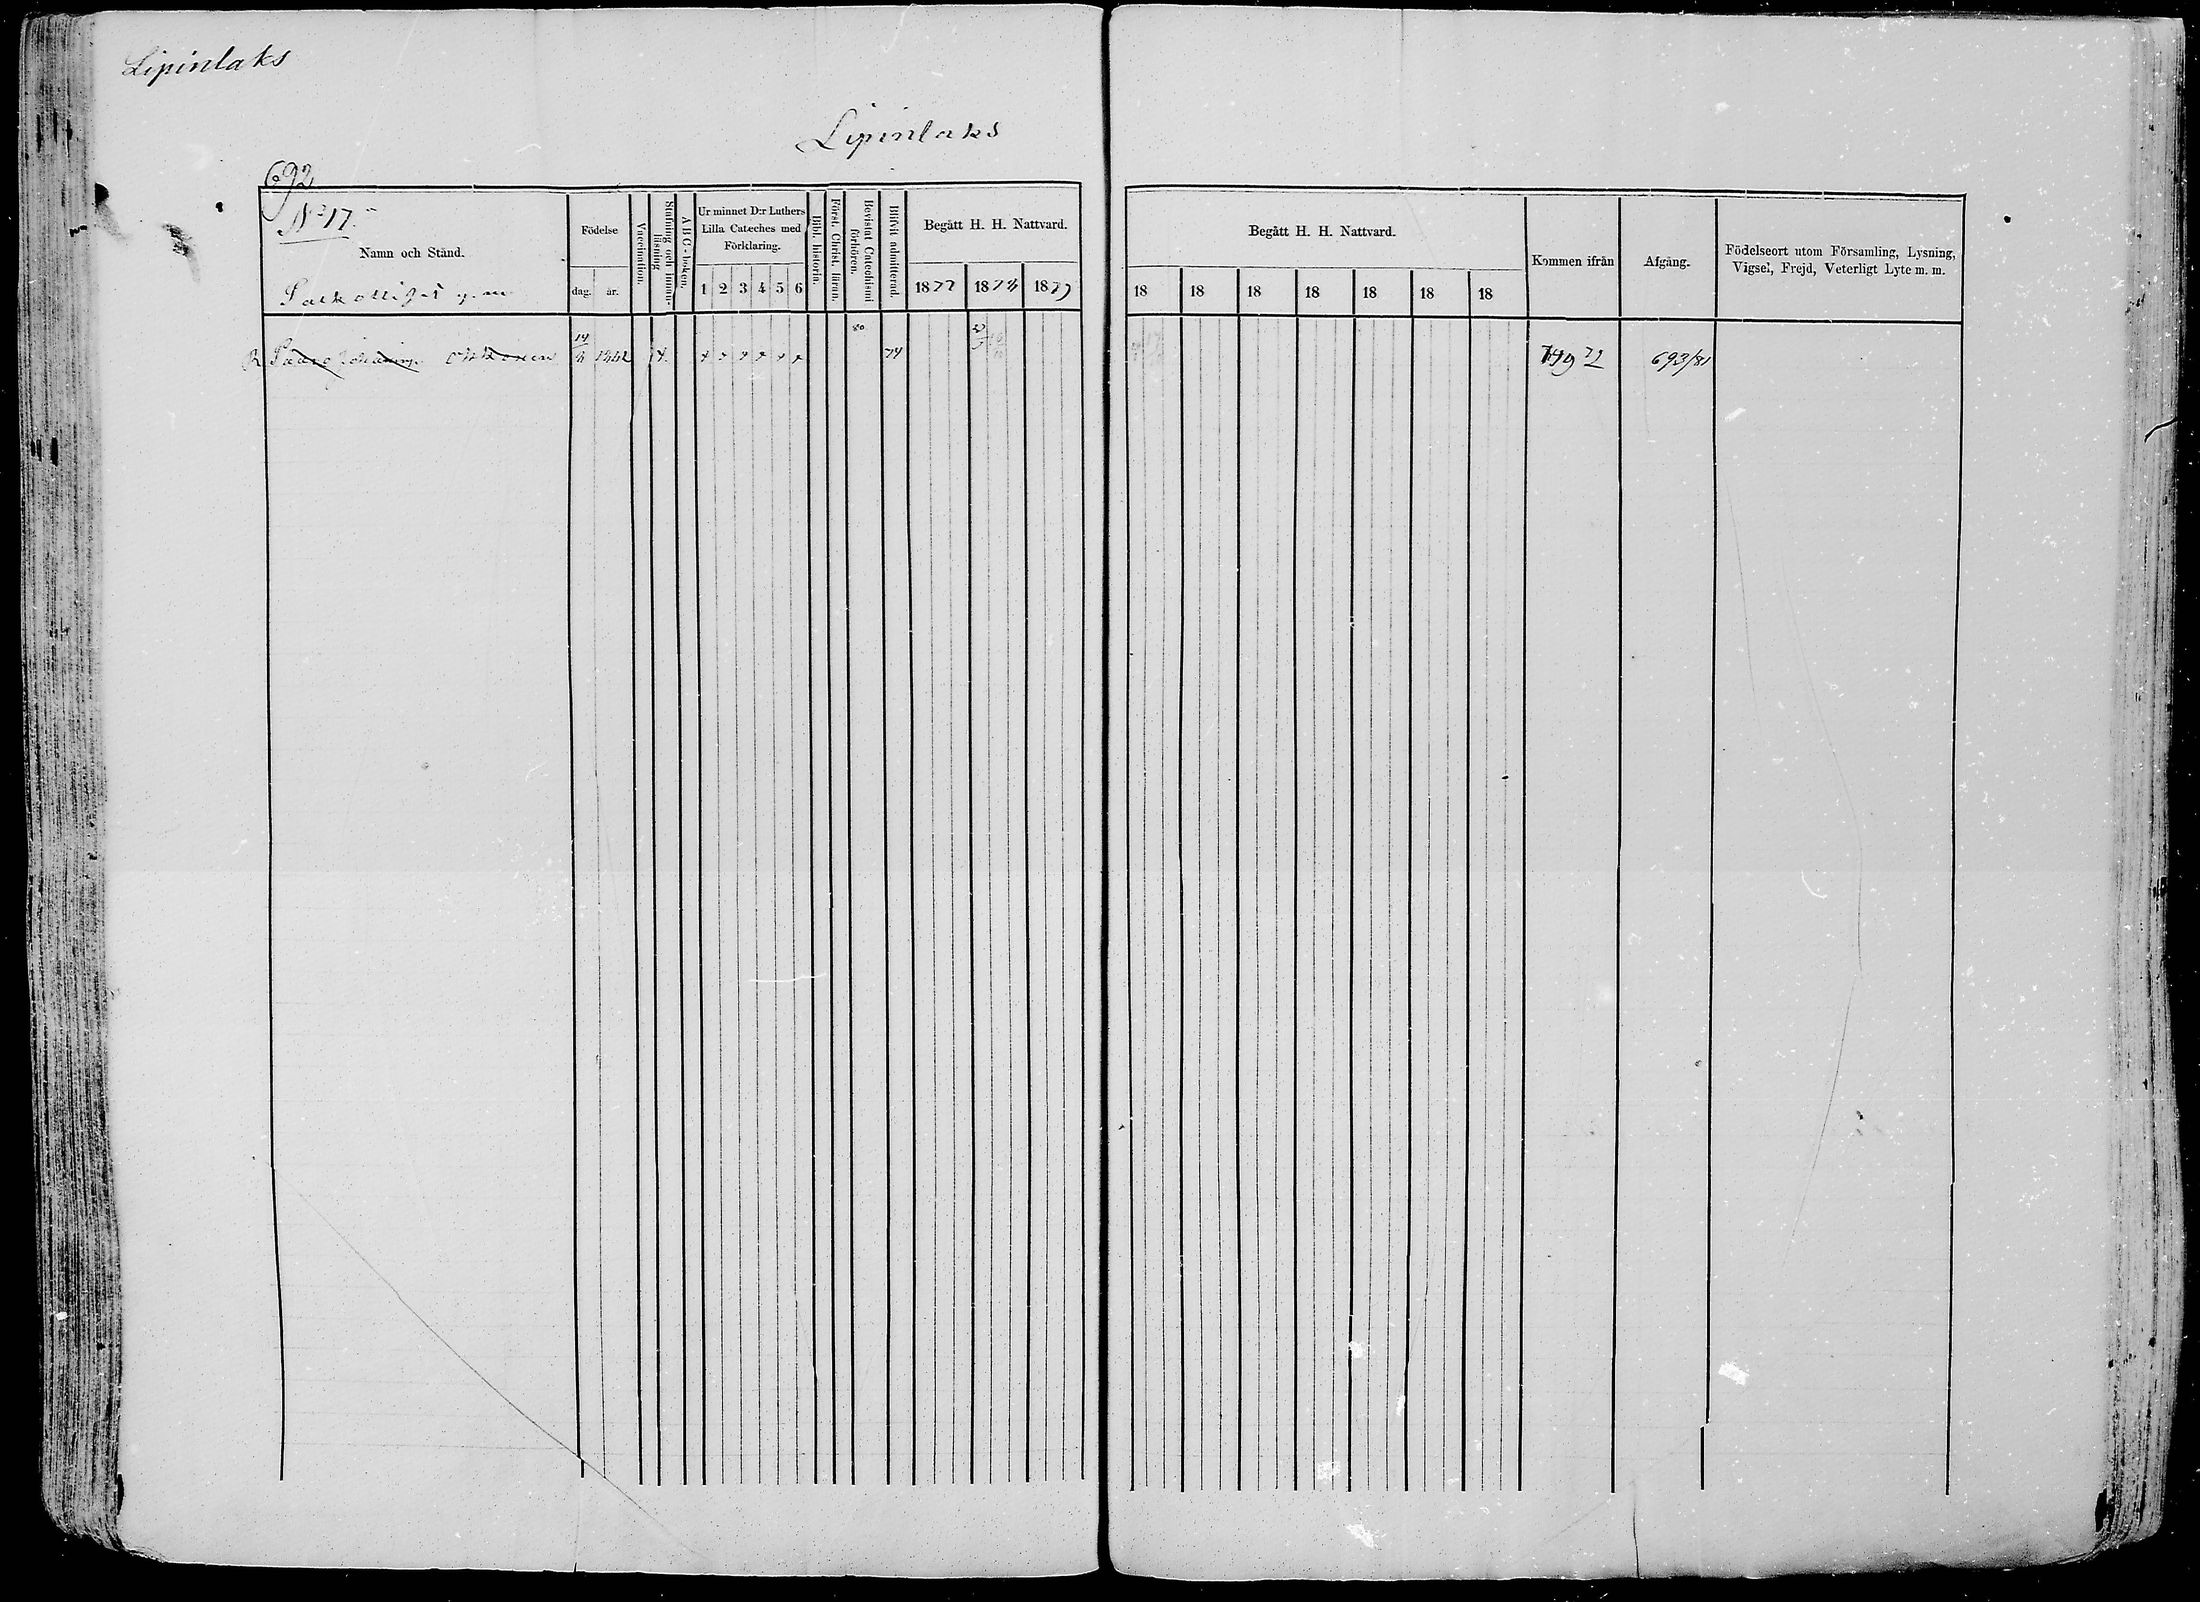 Lipinlaks
Lipinlaks
692
No 17.
Namn och Stånd.
Födelse
dag. år.
Vaccination.
Stafning och innanläsning
A B C-boken.
Ur minnet D:r Luthers
Lilla Cateches med
Förklaring.
1 2 3 4 5 6
Bibl. historia.
Först. Christ. läran.
Bevistat Catechismi förhören.
Blifvit admitterad.
Begått H. H. Nattvard.
1877 1878 1879
Begått H. H. Nattvard.
18 18 18 18 18 18 18
Kommen ifrån
Afgång.
Födelseort utom Församling, Lysning,
Vigsel, Frejd, Veterligt Lyte m. m.
80
R Okkonen x x x x x x 693/81